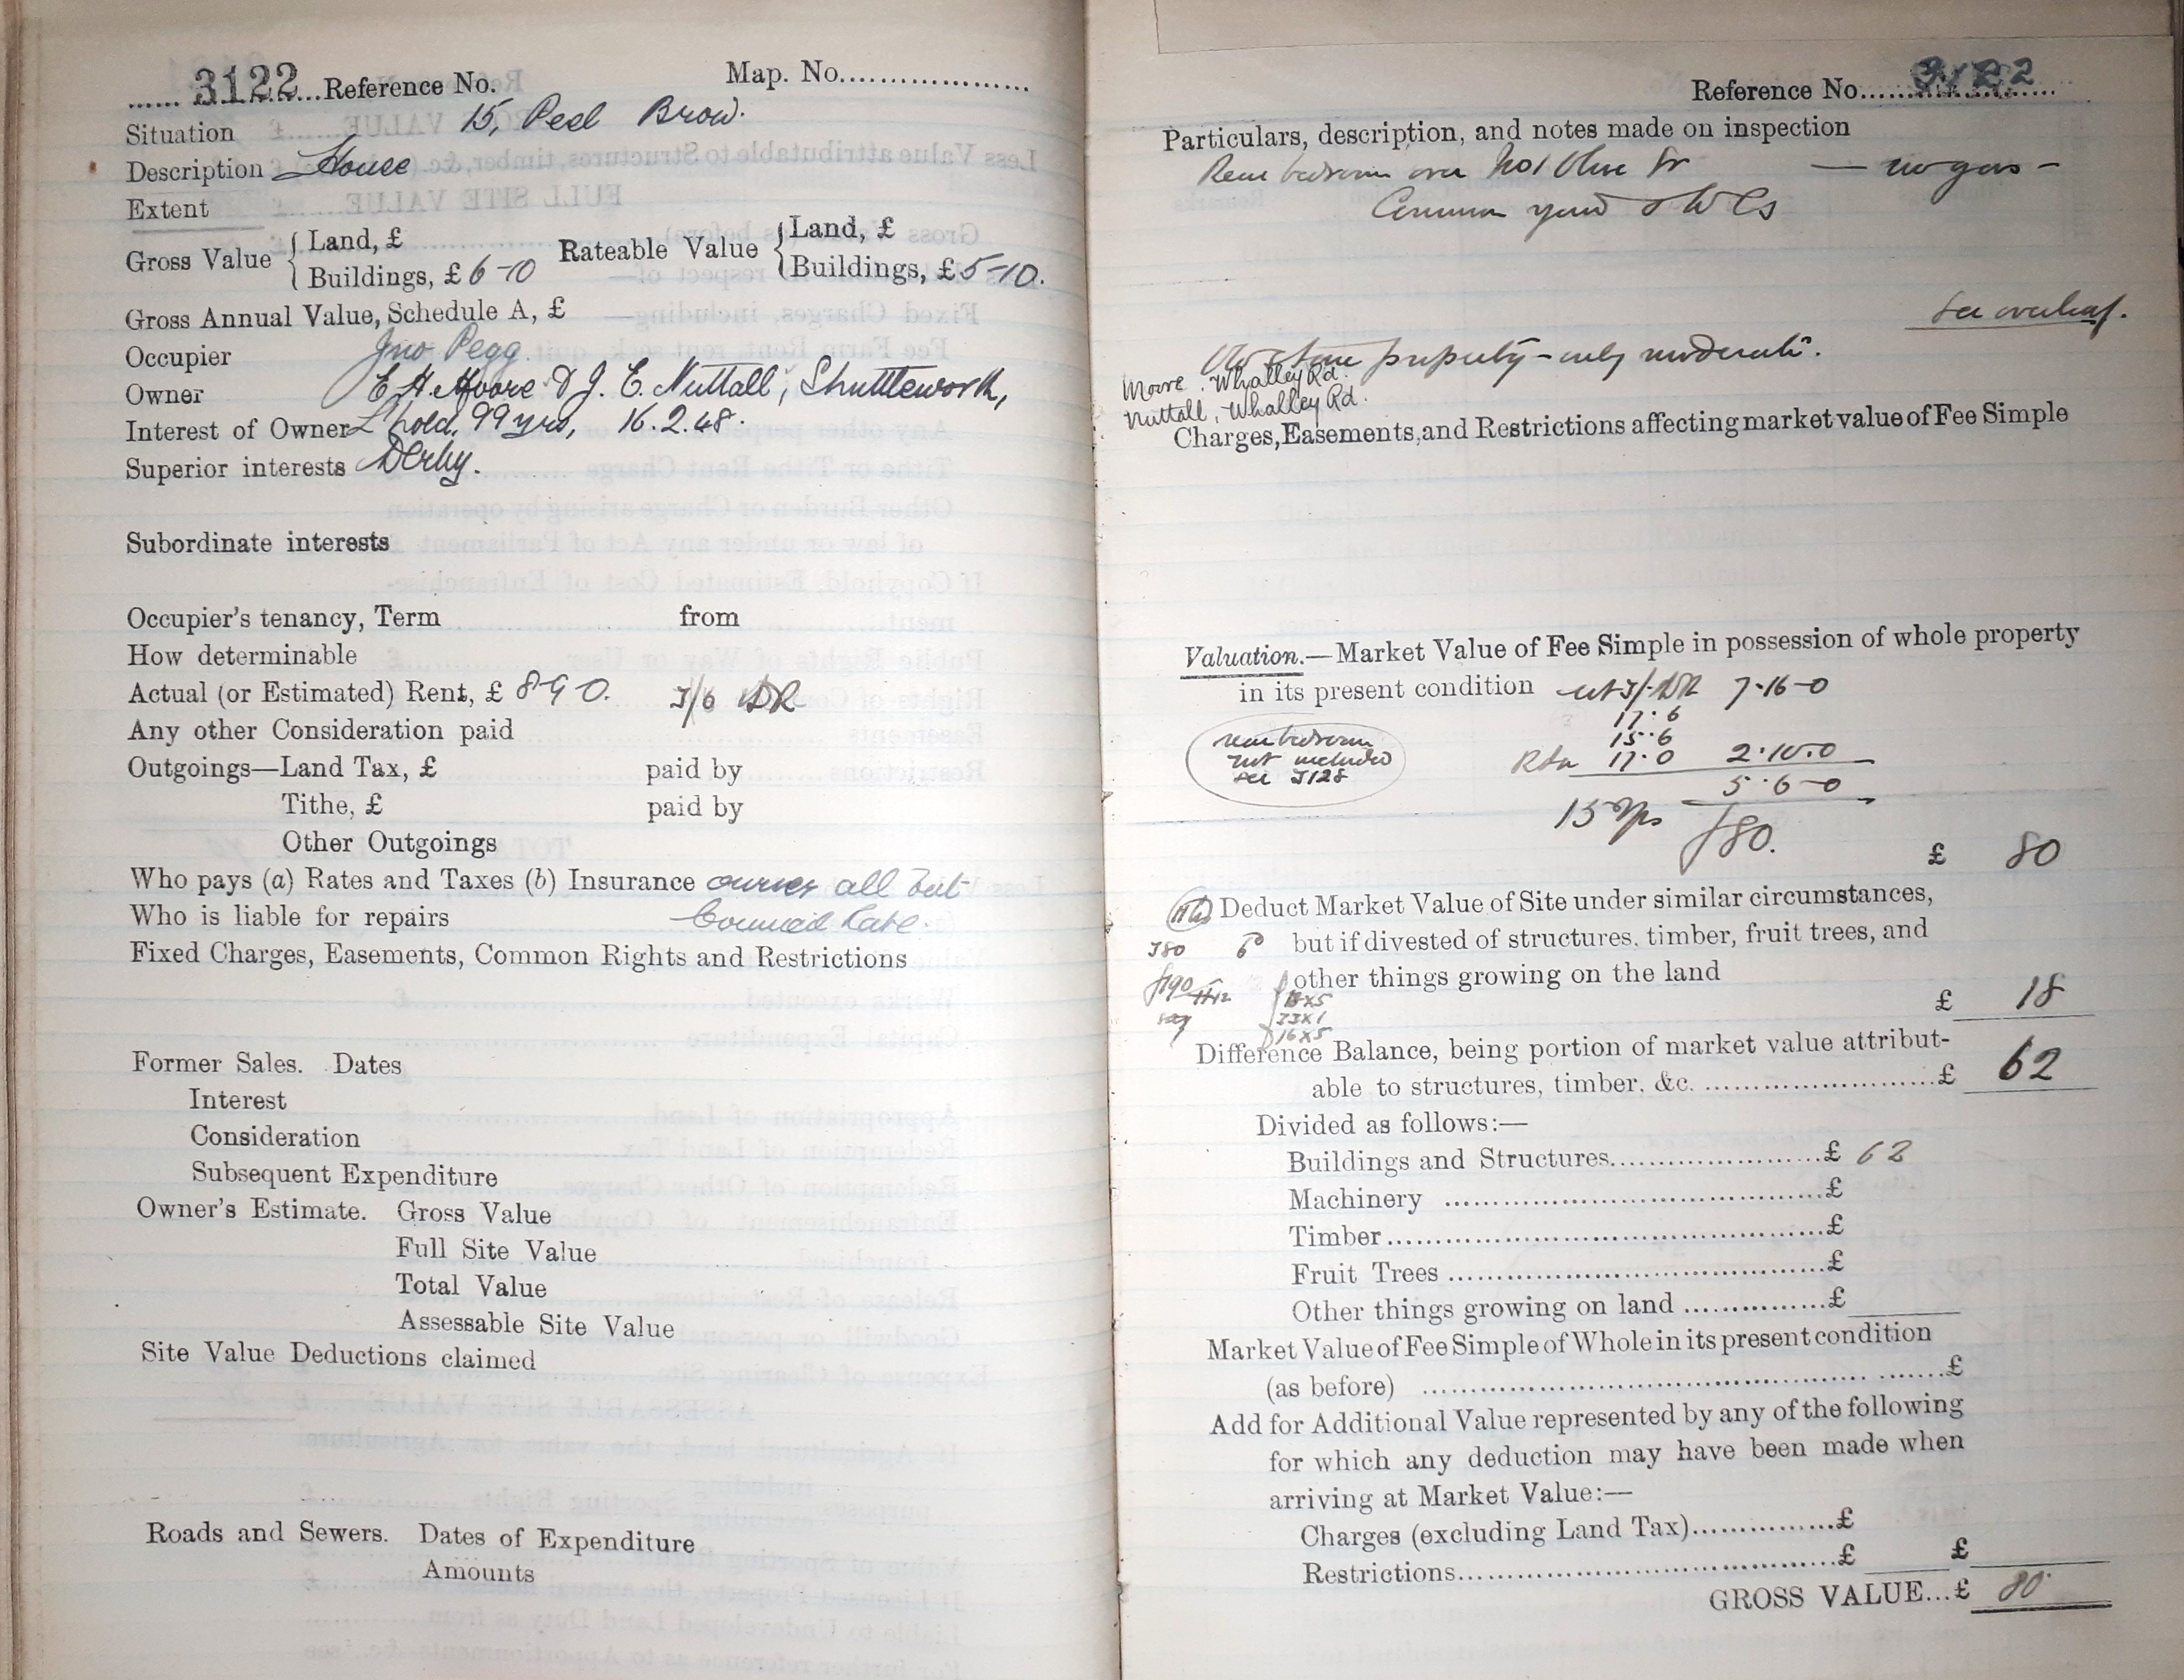 3122 Reference No. Map. No.
Situation 15, Peel Brow.
Description House
Extent
Gross Value { Land, £ Rateable Value { Land, £
Buildings, £ 6-10 Buildings, £ 5-10.
Gross Annual Value, Schedule A, £
Occupier Jno Pegg
Owner E. H. Moore & J. E. Nuttall, Shuttleworth,
Interest of Owner L'hold, 99 yrs, 16.2.48.
Superior interests Derby.
Subordinate interests
Occupier's tenancy, Term from
How determinable
Actual (or Estimated) Rent, £ 8 9 0. 3/6 DR
Any other Consideration paid
Outgoings—Land Tax, £ paid by
Tithe, £ paid by
Other Outgoings
Who pays (a) Rates and Taxes (b) Insurance owner all but
Who is liable for repairs Council Rate.
Fixed Charges, Easements, Common Rights and Restrictions
Former Sales. Dates
Interest
Consideration
Subsequent Expenditure
Owner's Estimate. Gross Value
Full Site Value
Total Value
Assessable Site Value
Site Value Deductions claimed
Roads and Sewers. Dates of Expenditure
Amounts
Reference No. 3122
Particulars, description, and notes made on inspection
Rear bedroom over No 1 Olive St — no gas —
Common yard & WCs
See overleaf.
Old stone property - only moderate.
Moore, Whalley Rd.
Nuttall, Whalley Rd.
Charges, Easements, and Restrictions affecting market value of Fee Simple
Valuation.—Market Value of Fee Simple in possession of whole property
in its present condition 3/- DR 7-16-0
17.6
rear bedroom 15.6
not included 17.0 2.10.0
see 3128 5-6-0
15 yps £80.
£ 80
Deduct Market Value of Site under similar circumstances,
380 but if divested of structures, timber, fruit trees, and
other things growing on the land
£ 18
23x1
16x5
Difference Balance, being portion of market value attribut-
able to structures, timber, &c. £ 62
Divided as follows:—
Buildings and Structures £ 62
Machinery £
Timber £
Fruit Trees £
Other things growing on land £
Market Value of Fee Simple of Whole in its present condition
(as before) £
Add for Additional Value represented by any of the following
for which any deduction may have been made when
arriving at Market Value:—
Charges (excluding Land Tax) £
Restrictions £ £
GROSS VALUE...£ 80